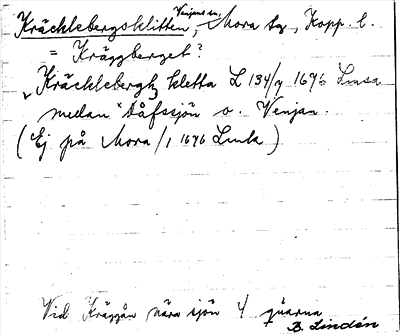 Kräcklebergsklitten, Venjans sn, Mora tg, Kopp. l.
= Kräggberget?
"Kräcklebergh kletta L 134/7 1696 Lmsa
medan" Dåfssjön o. Venjan.
(Ej på Mora /1 1696 Lmla)
Vid Kräggån nära sjön 4 quarna
B. Lindén